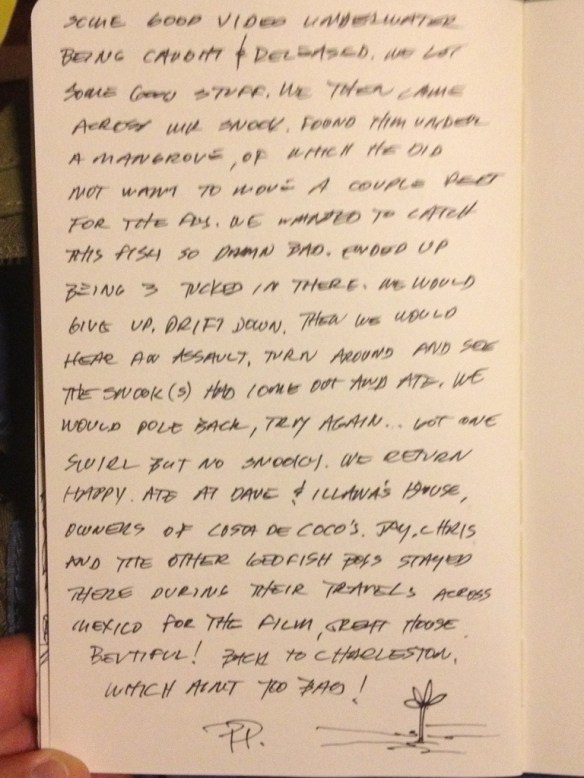 SOME GOOD VIDEO UNDERWATER
BEING CAUGHT & RELEASED. WE GOT
SOME GOOD STUFF. WE THEN CAME
ACROSS MR SNOOK. FOUND HIM UNDER
A MANGROVE, OF WHICH HE DID
NOT WANT TO MOVE A COUPLE FEET
FOR THE FLY. WE WANTED TO CATCH
THIS FISH SO DAMN BAD. ENDED UP
BEING 3 TUCKED IN THERE. WE WOULD
GIVE UP, DRIFT DOWN, THEN WE WOULD
HEAR AN ASSAULT, TURN AROUND AND SEE
THE SNOOK(S) HAD COME OUT AND ATE. WE
WOULD POLE BACK, TRY AGAIN... GOT ONE
SWIRL BUT NO SNOOKY. WE RETURN
HAPPY. ATE AT DAVE & ILLANA'S HOUSE,
OWNERS OF COSTA DE COCO'S. JAY, CHRIS
AND THE OTHER GEOFISH BOYS STAYED
THERE DURING THEIR TRAVELS ACROSS
MEXICO FOR THE FILM, GREAT HOUSE
BEUTIFUL! BACK TO CHARLESTON,
WHICH AINT TOO BAD!
PP.